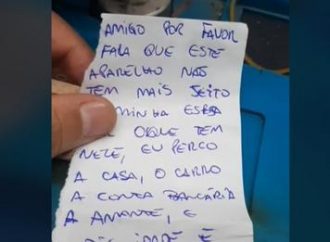 AMIGO POR FAVOR
FALA QUE ESTE
APARELHO NÃO
TEM MAIS JEITO
MINHA ESPOSA
O QUE TEM
NELE, EU PERCO
A CASA, O CARRO
A CONTA BANCÁRIA
A AMANTE, E